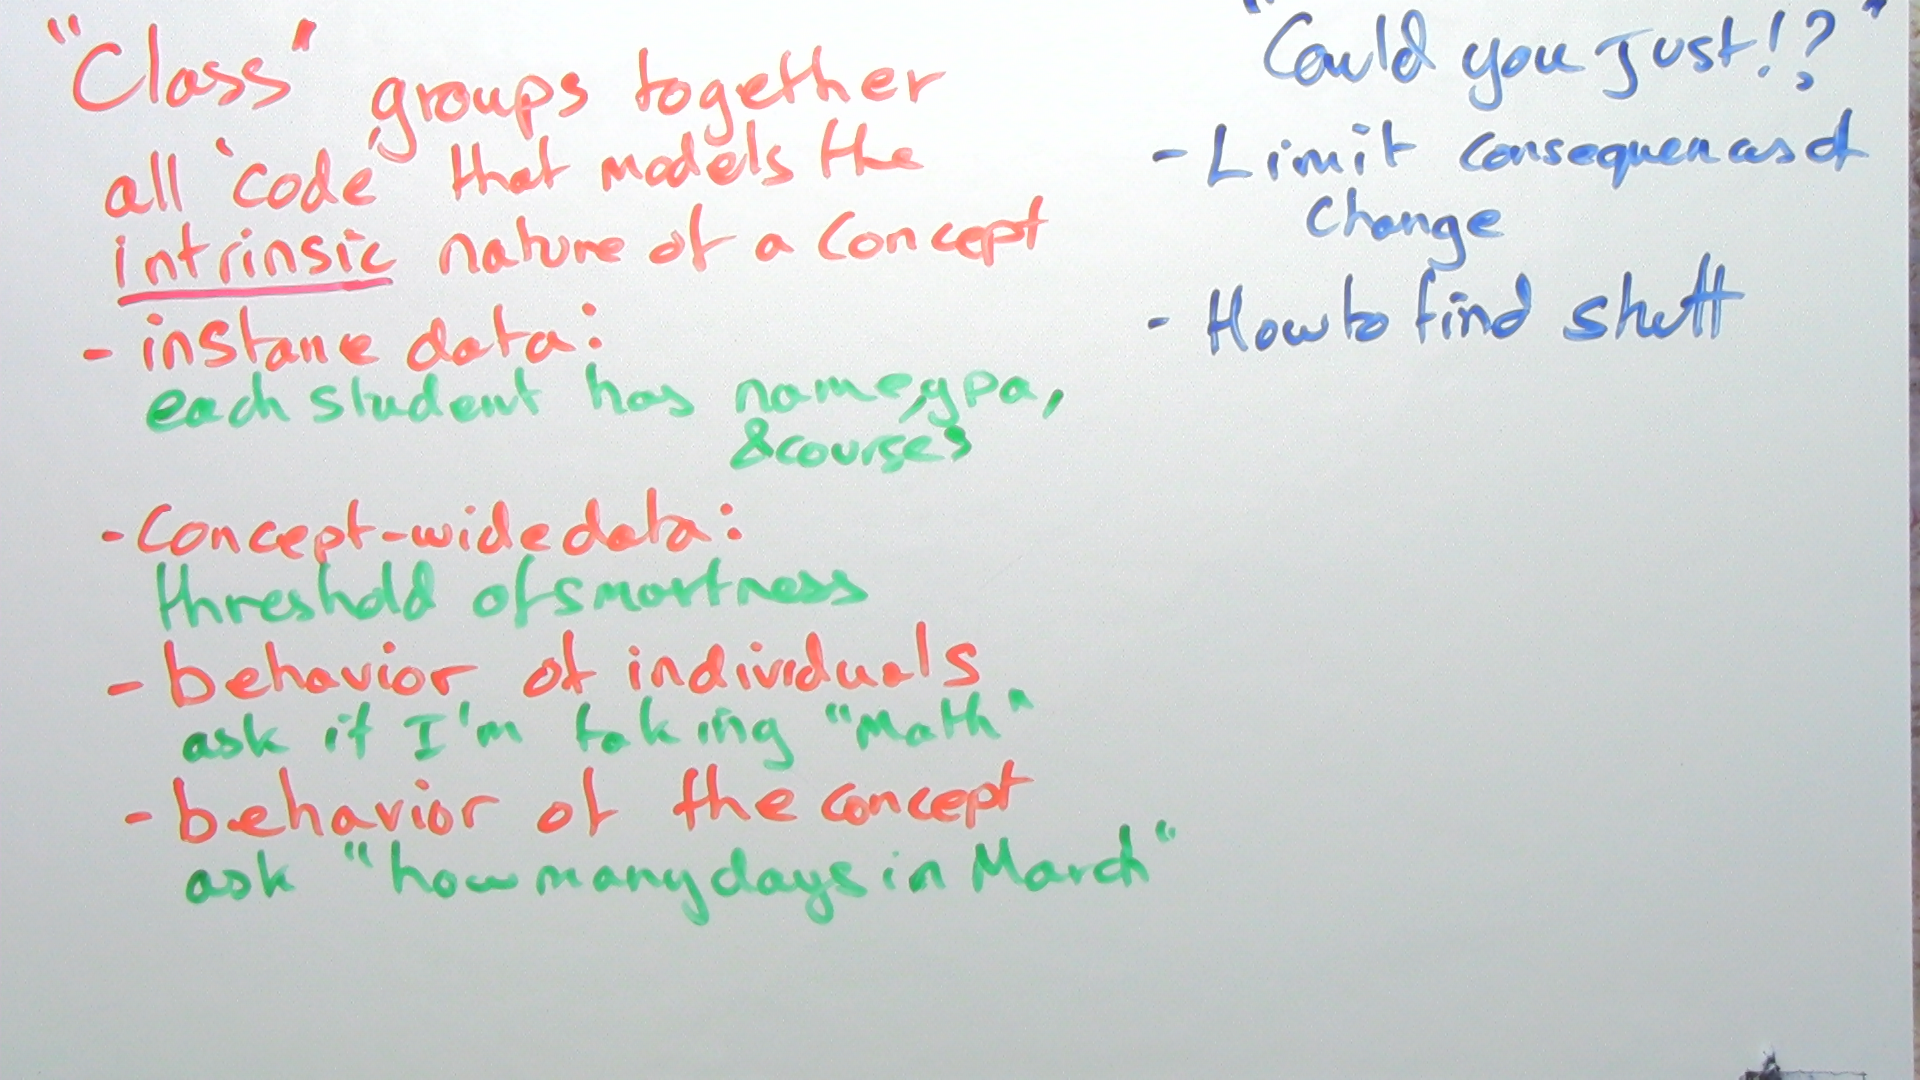 "Class" groups together
all 'code' that models the
intrinsic nature of a concept
- instance data:
each student has name, gpa,
& courses
- Concept-wide data:
threshold of smartness
- behavior of individuals
ask if I'm taking "Math"
- behavior of the concept
ask "how many days in March"
"Could you Just!?"
- Limit consequences of
change
- How to find stuff